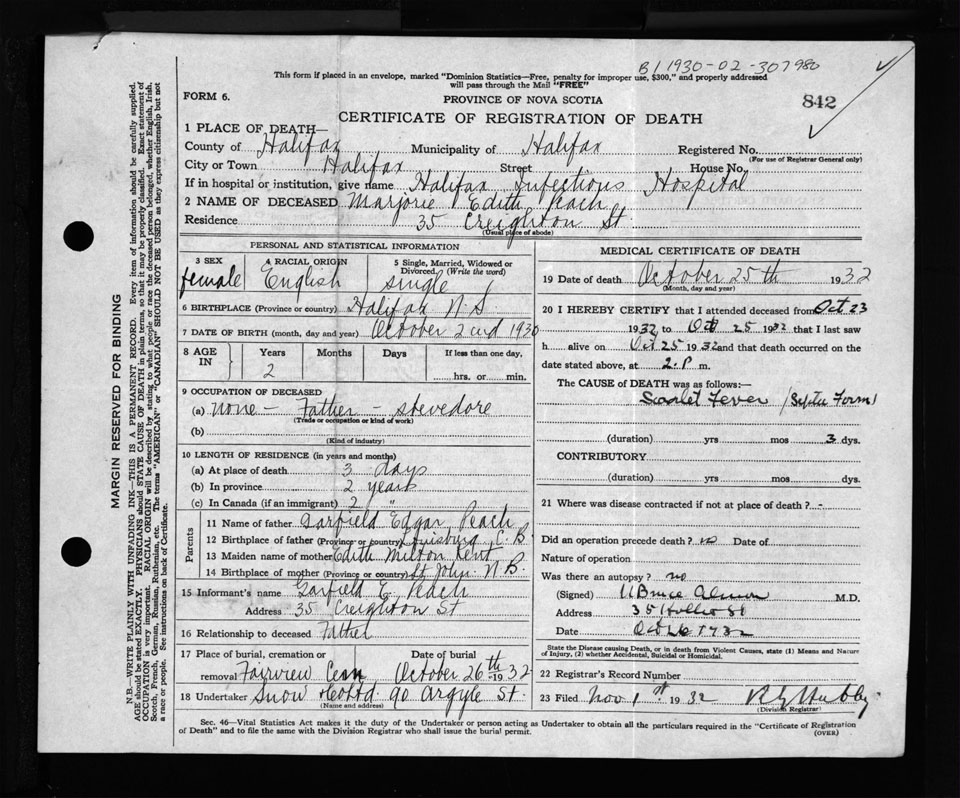 B1 1930-02-307980
This form if placed in an envelope, marked "Dominion Statistics—Free, penalty for improper use, $300," and properly addressed
will pass through the Mail "FREE"
FORM 6.
PROVINCE OF NOVA SCOTIA
842
CERTIFICATE OF REGISTRATION OF DEATH
1 PLACE OF DEATH—
County of Halifax Municipality of Halifax Registered No.
(For use of Registrar General only)
City or Town Halifax Street House No.
If in hospital or institution, give name Halifax Infectious Hospital
2 NAME OF DECEASED Marjorie Edith Peach
Residence 35 Creighton St
(Usual place of abode)
PERSONAL AND STATISTICAL INFORMATION
3 SEX 4 RACIAL ORIGIN 5 Single, Married, Widowed or
Divorced, (Write the word)
female English single
6 BIRTHPLACE (Province or country) Halifax N.S
7 DATE OF BIRTH (month, day and year) October 2nd 1930
8 AGE IN Years Months Days If less than one day,
2 hrs. or min.
9 OCCUPATION OF DECEASED
(a) none - Father - stevedore
(Trade or occupation or kind of work)
(b)
(Kind of industry)
10 LENGTH OF RESIDENCE (in years and months)
(a) At place of death 3 days
(b) In province 2 years
(c) In Canada (if an immigrant) 2 "
Parents
11 Name of father Garfield Edgar Peach
12 Birthplace of father (Province or country) Louisburg C.B.
13 Maiden name of mother Edith Milton Kent
14 Birthplace of mother (Province or country) St John N.B.
15 Informant's name Garfield E. Peach
Address 35 Creighton St
16 Relationship to deceased Father
17 Place of burial, cremation or removal Date of burial
Fairview Cem October 26th 1932
18 Undertaker Snow & Co Ltd 90 Argyle St.
(Name and address)
MEDICAL CERTIFICATE OF DEATH
19 Date of death October 25th 1932
(Month, day and year)
20 I HEREBY CERTIFY that I attended deceased from Oct 23
1932 to Oct 25 1932 that I last saw
h alive on Oct 25 1932 and that death occurred on the
date stated above, at 2.P. m.
The CAUSE OF DEATH was as follows:—
Scarlet Fever (Septic Form)
(duration) yrs mos 3 dys.
CONTRIBUTORY
(duration) yrs mos dys.
21 Where was disease contracted if not at place of death? -
Did an operation precede death? no Date of
Nature of operation
Was there an autopsy? no
(Signed) Bruce Almon M.D.
Address 35 Hollis St
Date Oct 26 1932
State the Disease causing Death, or in death from Violent Causes, state (1) Means and Nature
of Injury, (2) whether Accidental, Suicidal or Homicidal.
22 Registrar's Record Number
23 Filed Nov 1st 1932
(Division Registrar)
Sec. 46—Vital Statistics Act makes it the duty of the Undertaker or person acting as Undertaker to obtain all the particulars required in the "Certificate of Registration
of Death" and to file the same with the Division Registrar who shall issue the burial permit.
(OVER)
MARGIN RESERVED FOR BINDING
N.B.—WRITE PLAINLY WITH UNFADING INK—THIS IS A PERMANENT RECORD. Every item of information should be carefully supplied.
AGE should be stated EXACTLY. PHYSICIANS should STATE CAUSE OF DEATH in plain terms, so that it may be properly classified. Exact statement of
OCCUPATION is very important. RACIAL ORIGIN will be described by stating to what people or race the deceased person belonged, whether English, Irish,
Scotch, French, German, Russian, Ruthenian, etc. The terms "AMERICAN" or "CANADIAN" SHOULD NOT BE USED as they express citizenship but not
a race or people. See instructions on back of Certificate.